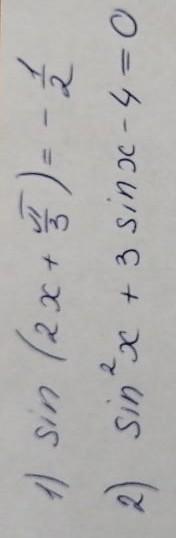 1) sin (2x + π/3) = - 1/2
2) sin²x + 3 sinx - 4 = 0